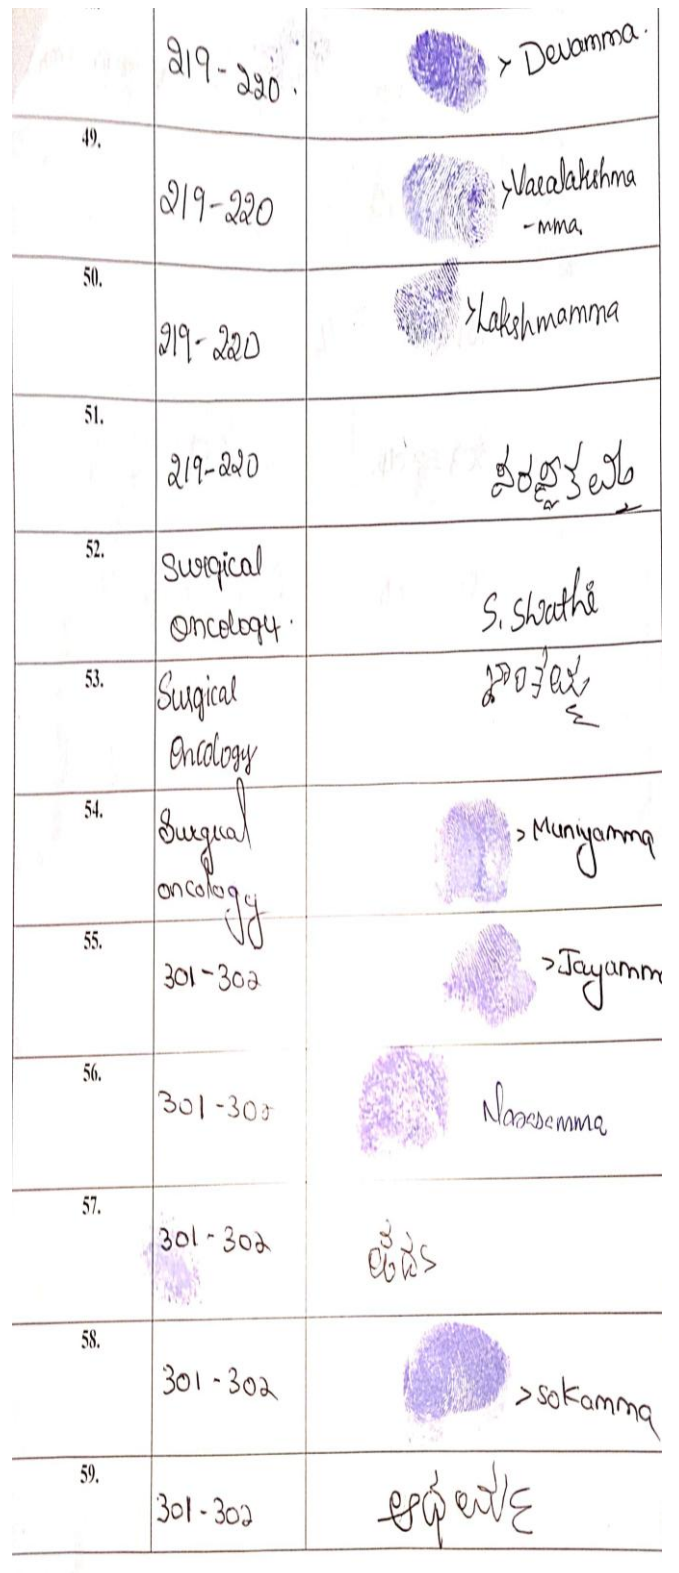 219-220. > Devamma.
49.
219-220 > Varalakshma
-mma.
50.
219-220 > Lakshmamma
51.
219-220
52.
Surgical
Oncology. S. Swathi
53.
Surgical
Oncology
54.
Surgical > Muniyamma
oncology
55.
301-302 > Jayamm
56.
301-302
57.
301-302
58.
301-302 > Sokamma
59.
301-302